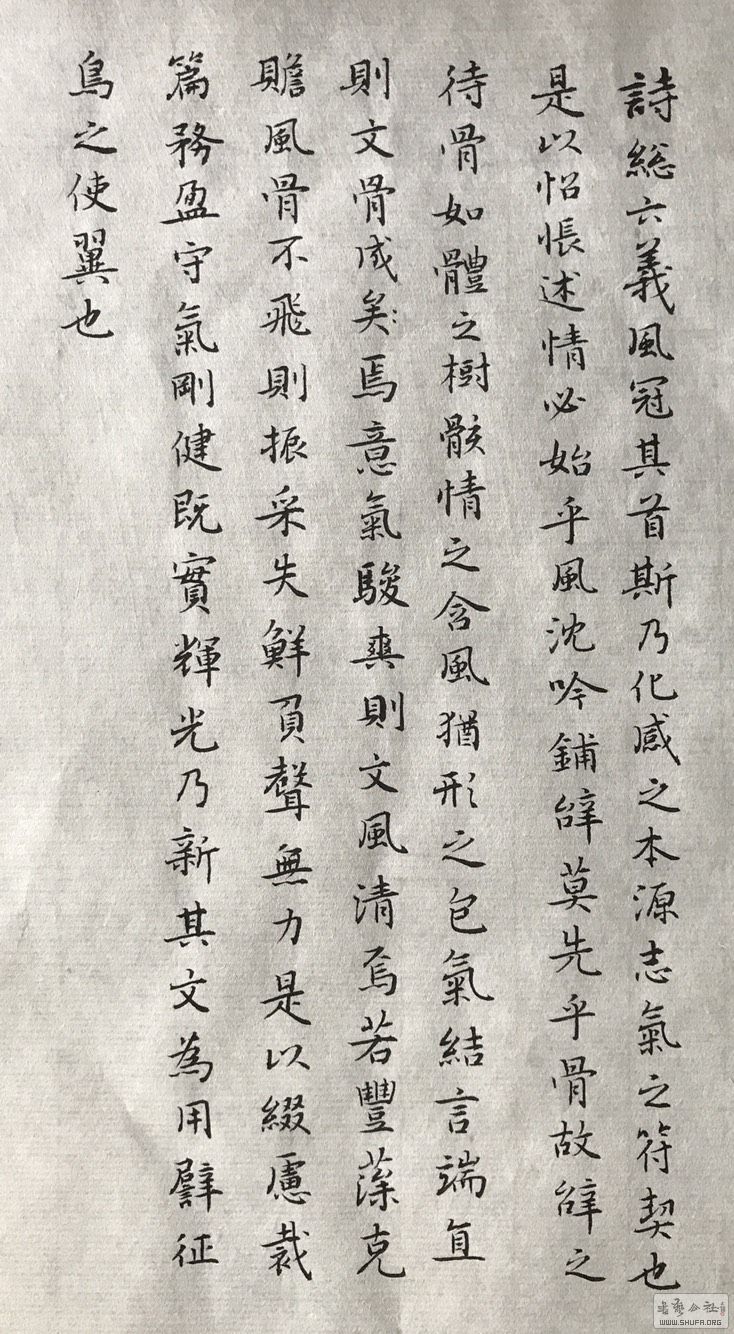 詩總六義風冠其首斯乃化感之本源志氣之符契也
是以怊悵述情必始乎風沈吟鋪辭莫先乎骨故辭之
待骨如體之樹骸情之含風猶形之包氣結言端直
則文骨成矣焉意氣駿爽則文風清焉若豐藻克
贍風骨不飛則振采失鮮負聲無力是以綴慮裁
篇務盈守氣剛健既實輝光乃新其文為用譬征
鳥之使翼也
書藝公社
WWW.SHUFA.ORG